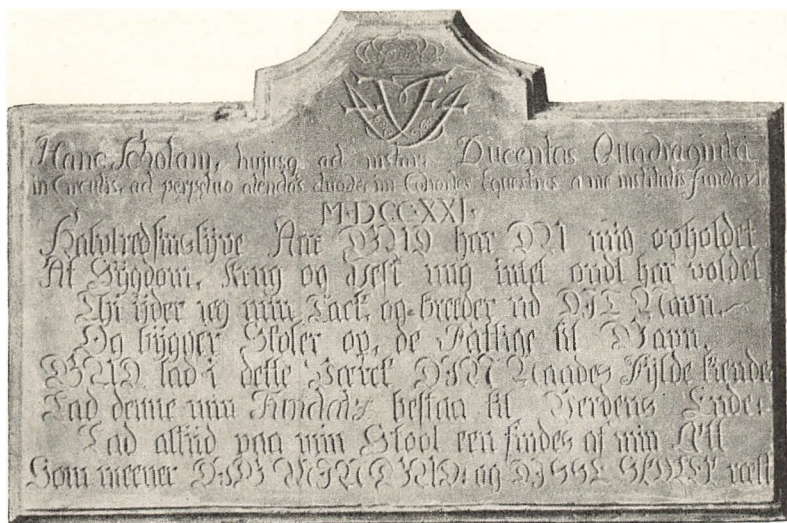 Hanc Scholam, hujusq ad instar Ducentas Quadraginta
in Circulis, ad perpetuo alendas duodecim Cohortes Equestres a me institutis fundavi.
M·DCC·XXI·
Halvtredsinstyve Aar GUD har DU mig opholdet
At Sygdom, Krug og Pest mig intet ondt har voldet
Thi yder jeg min Tack, og breeder ud DIT Navn,
Og bygger Skoler op, de Fattige til Gavn,
GUD lad i dette Værck DIN Naades Fylde kiende
Lad denne min Fundatz bestaa til Verdens Ende:
Lad altiid paa min Stool een findes af min Æt
Som meener DIG MIN GUD: og DISSE SKOLER rætt